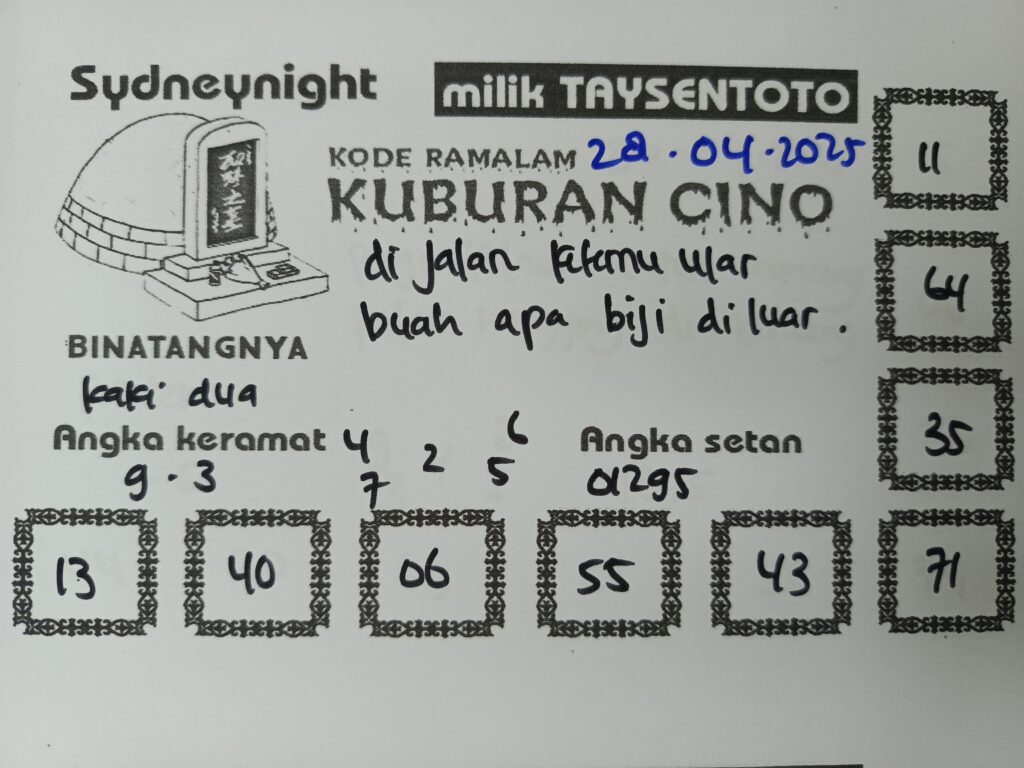 Sydneynight
milik TAYSENTOTO
KODE RAMALAM 28.04.2025
KUBURAN CINO
di jalan ketemu ular
buah apa biji diluar.
BINATANGNYA
kaki dua
Angka keramat
9.3
4 6
2
7 5
Angka setan
01295
11
64
35
71
13 40 06 55 43